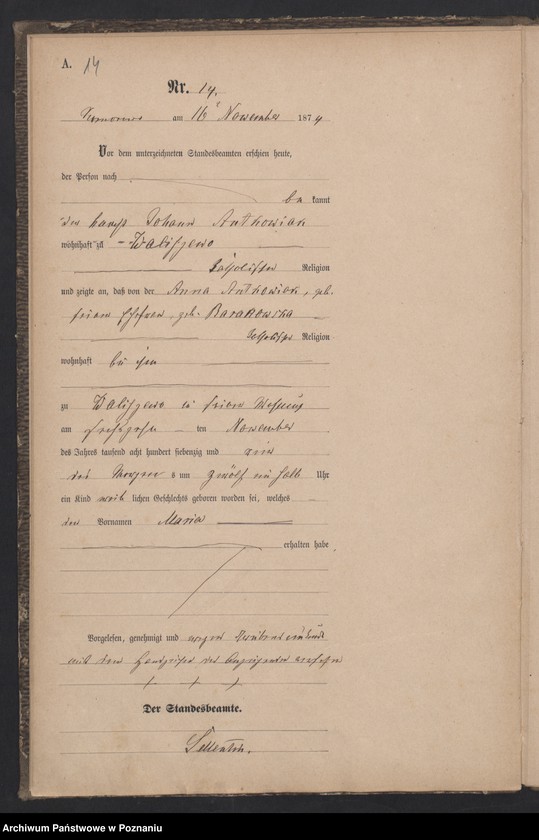 A. 14
Nr. 14.
am 16 November 1874
Vor dem unterzeichneten Standesbeamten erschien heute,
der Person nach
be kannt
der Johann Anthowiak
wohnhaft zu Walischewo
katholischer Religion
und zeigte an, daß von der Anna Anthowiak, geb.
seiner Ehefrau geb. Barakowska
katholischer Religion
wohnhaft bei ihm
zu Walischewo in seiner Wohnung
am ten November
des Jahres tausend acht hundert siebenzig und vier
des Morgens um zwölf ein halb Uhr
ein Kind weib lichen Geschlechts geboren worden sei, welches
den Vornamen Maria
erhalten habe
Vorgelesen, genehmigt und wegen
mit dem Handzeichen des versehen
+ + +
Der Standesbeamte.
Archiwum Państwowe w Poznaniu